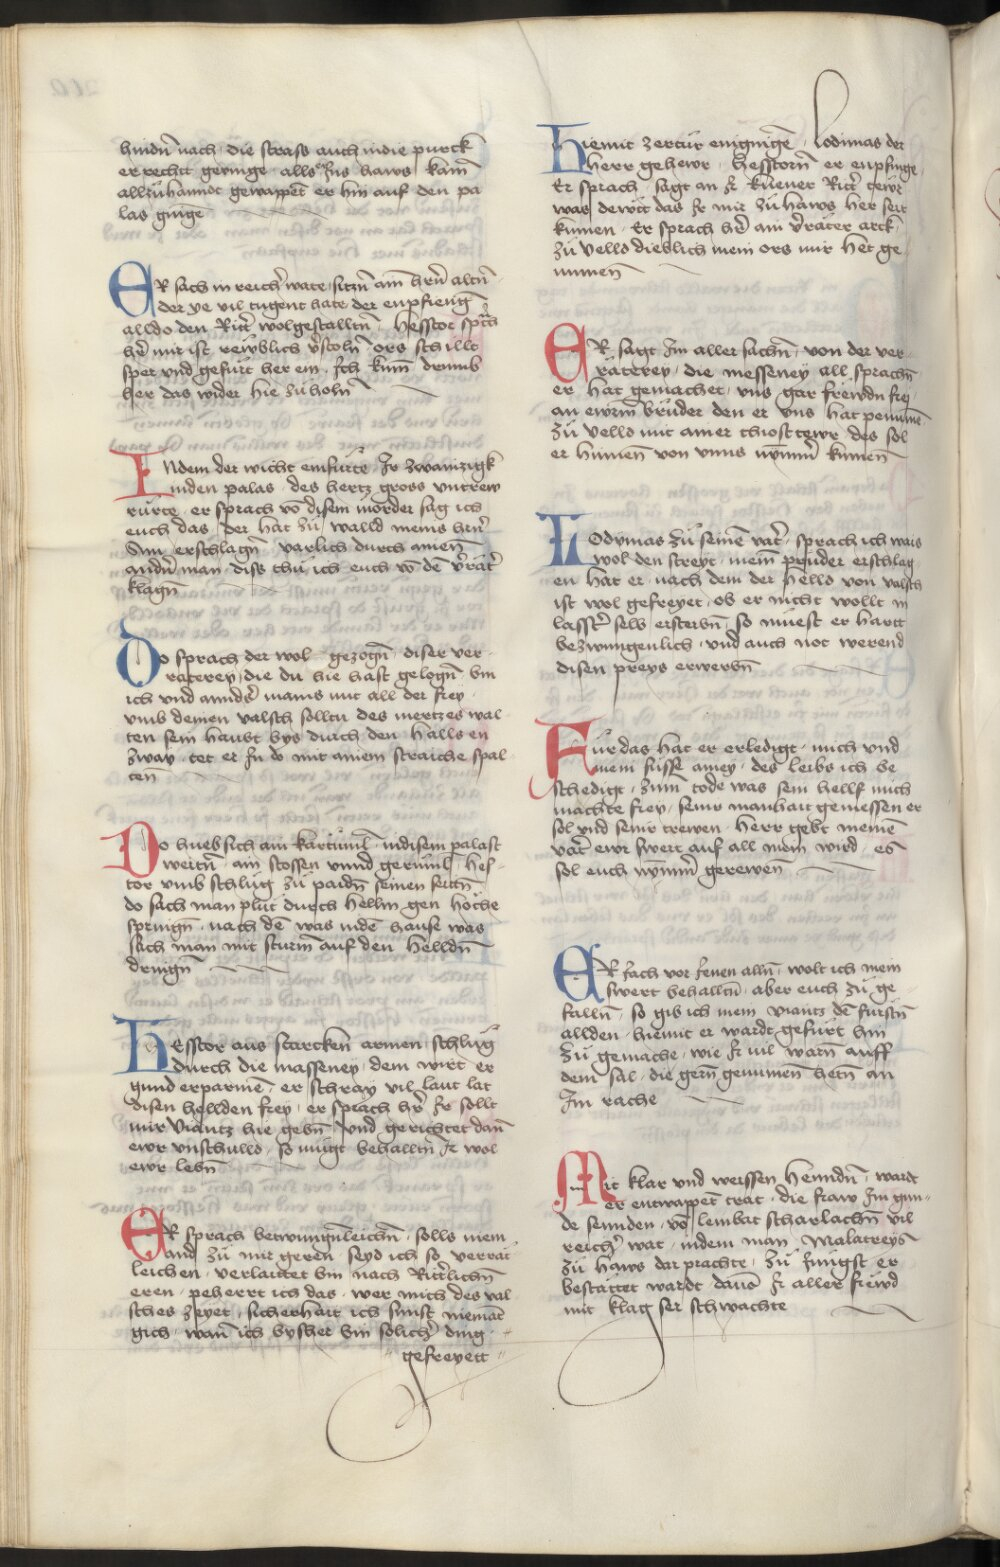 hindn̄ nach die strass auch in die purck
er recht geringe alls Zus haws kam̄
allzuhanndt gewappet er hin auf den pa
las ginge
ER sach in reich̄ wate sitzn̄ ain̄ hrn̄ altn̄
der ye vil tugent hate der enpfieng
alldo den Ritt̄ wolgestalltn̄ Hesstor sprach
her mir ist rewblich v̄stoln̄ ors schillt
sper vnd gefürt her ein Ich kum̄ darumb
her das wider hie zu holn̄
INdem der wicht einfürte Ir zwainzigk
inden palas des hertz gross vntrew
rürte er sprach vō disem mörder sag ich
euch das der hat zu walld meins hrn̄
Sun erschlagn̄ varlich durch ainen
andn̄ man diss thu ich euch vō dē v̄rät̄
klagn̄
DO sprach der wol gezogn̄ diser ver
räterey die du hie hast gelogn̄ bin
ich vnd annders mains mit all der frey
vmb deinen valsch solltu des mertzes wal
ten sein haubt bys durch den halls en
zway tet er Im do mit ainem straiche spal
ten
DO hueb sich ain kartüml in disem palast
weitn̄ ain stossen vnnd gerüml hes
tor vmb schlug zu paidn̄ seinen seittn̄
do sach man plut durch hellm gen höche
springn̄ nach dē was indē hause was
sach man mit sturm̄ auf den helldn̄
dringn̄
HEsstor aus starcken armen schlug
durch die masseney dem wirt er
gund erparmē er schray vil laut lat
disen hellden frey er sprach hr̄ Ir sollt
mir viantz hie gebn̄ vnd gerichtet dan̄
ewr vnschulld so mügt behalltn̄ Ir wol
ewr lebn̄
ER sprach betwungenleichn̄ solls niem
and zu mir geren seyd ich so verrät
leichen verlaitet bin nach Rittlichn̄
eren peherrt ich das wer mich des val
sches zeyet sicherhait ich sunst niemāt
gich wan̄ ich bysher bin solicher ding
gefreyett
Hiemit zertür enigingē Lodimas der
herr gehewr Hesstorn̄ er enpfinge
Er sprach sagt an Ir küener Ritt̄ tewr
was dewtt das Ir mir zu haws her seit
kumen Er sprach hē ain v̄räter arck
zu vello dieblich mein ors mir het ge
numen
ER sagt Im aller sachn̄ von der ver
räterey die messeney all sprachn̄
er hat gemachet vns gar frewdn frey
an ewrm̄ bruder den er vns hat penumē
zu vello mit ainer thiost tewr des sol
er hinnen von vnns nȳmmer kumen
LOdymas zu seinē vat̄ sprach ich wais
wol den streyt meinē pruder erschlag
en hat er nach dem der helld von valsch
ist wol gefreyet ob er nicht wollt in
lasstr̄ selb ersterbn̄ so müest er hartt
bezwungenlich vnd auch not werend
disen preys erwerbn̄
Für das hat er erledigt mich vnd
mein süsse amey des leibs ich be
schedigt zum tode was sein hellf mich
machte frey seinr manhait geniessen er
sol vnd seinr trewen Herr gebt meinē
vat̄ ewr swert auf all mein wird es
sol euch nȳmmer gerewen
ER sach vor Jenen alln̄ wolt ich mein
swert behalltn̄ aber euch zu ge
falln̄ so gib ich mein viantz dē furstn̄
allden hiemit er wardt gefürt hin
zu gemache wie Ir vil warn auff
dem sal die gern̄ genumen hetn̄ an
Im rache
Mit klar vnd weissen henndn̄ wart
er entwappet trat die fraw Im gun
de sennden vō lembat scharlachn̄ vil
reichr̄ wat indem man Malatreysn̄
zu haws dar prachte zu Jüngst er
bestattet wardt dauō Ir aller frewd
mit klag ser schwachte